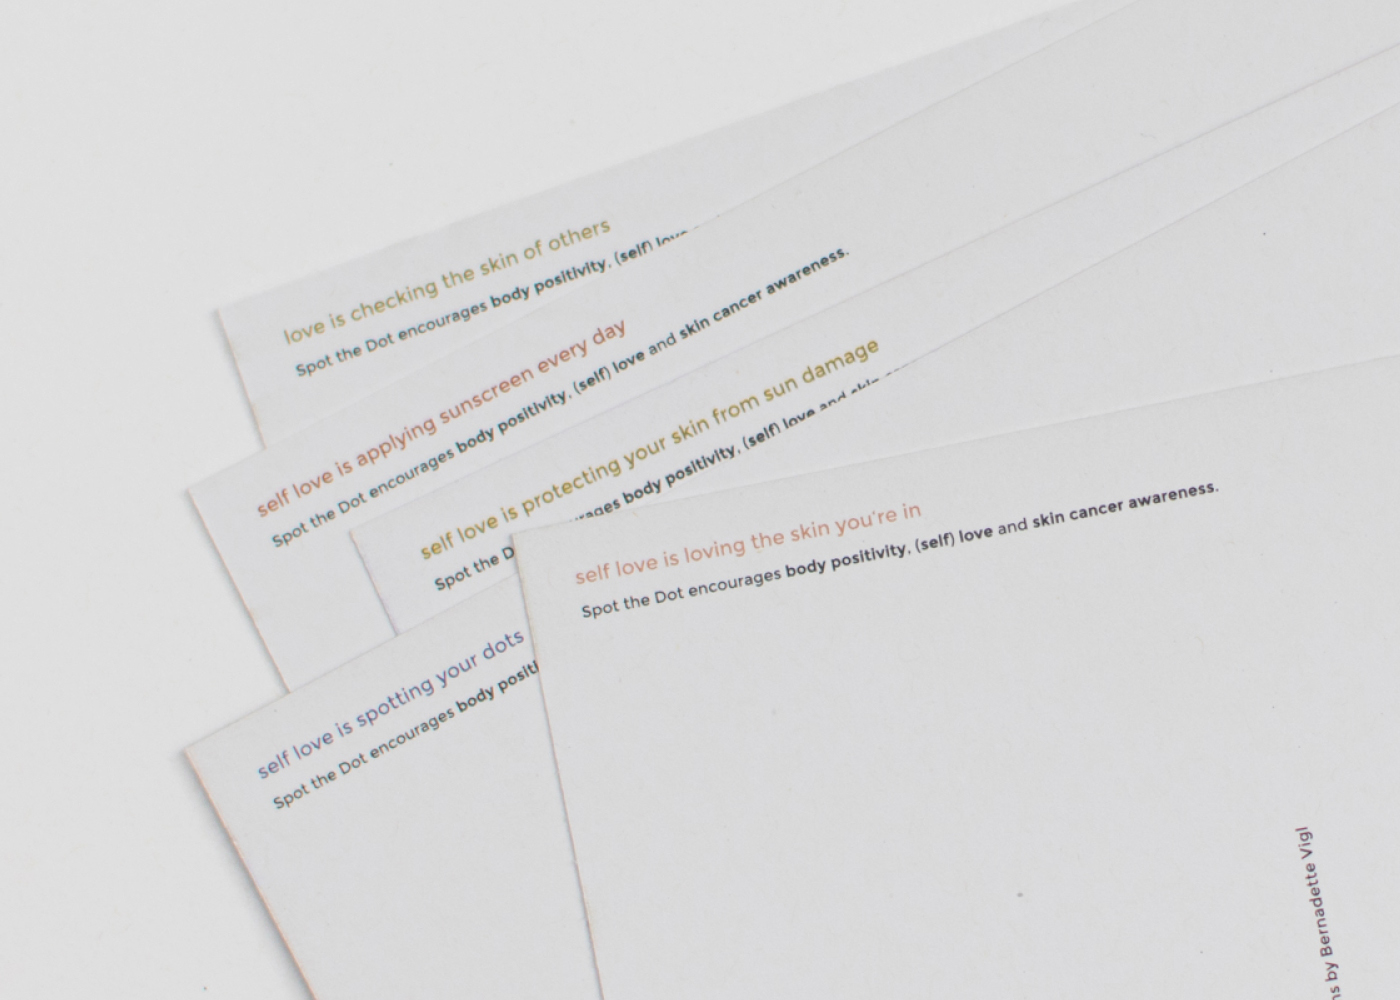 love is checking the skin of others
Spot the Dot encourages body positivity, (self) love
self love is applying sunscreen every day
Spot the Dot encourages body positivity, (self) love and skin cancer awareness.
self love is protecting your skin from sun damage
Spot the D
body positivity, (self) love and skin
self love is loving the skin you're in
Spot the Dot encourages body positivity, (self) love and skin cancer awareness.
self love is spotting your dots
Spot the Dot encourages body positi
by Bernadette Vigl